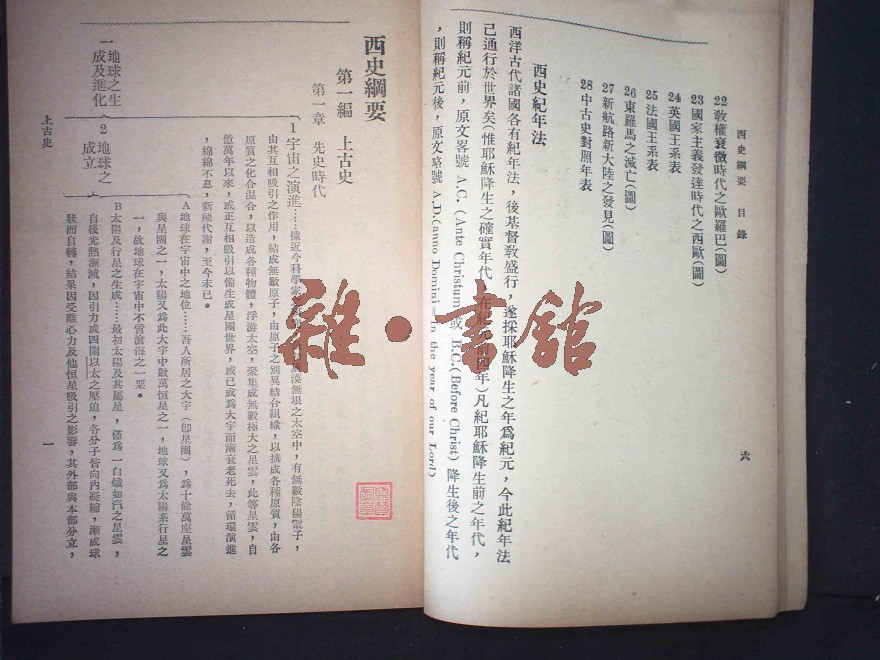 西史綱要 目錄
六
22 敎權衰微時代之歐羅巴(圖)
23 國家主義發達時代之西歐(圖)
24 英國王系表
25 法國王系表
26 東羅馬之滅亡(圖)
27 新航路新大陸之發見(圖)
28 中古史對照年表
西史紀年法
西洋古代諸國各有紀年法，後基督敎盛行，遂採耶穌降生之年爲紀元，今此紀年法
已通行於世界矣(惟耶穌降生之確實年代，在紀元前四年)凡紀耶穌降生前之年代，
則稱紀元前，原文畧號 A.C. (Ante Christum)或 B.C.(Before Christ) 降生後之年代
，則稱紀元後，原文略號 A.D.(anno Domini=In the year of our Lord)
西史綱要
第一編 上古史
第一章 先史時代
一 地球之生成及進化
1 宇宙之演進……據近今科學家 漠無垠之太空中，有無數陰陽電子，
由其互相吸引之作用，結成無數原子，由原子之別異結合組織，以搆成各種原質，由各
原質之化合混合，以造成各種物體，浮游太空，聚集成無數極大之星雲，此等星雲，自
億萬年以來，或正互相吸引以備生成星團世界，或已成爲大宇而漸衰老死去，循環演進
，綿綿不息，新陳代謝，至今未已。
2 地球之成立
A 地球在宇宙中之地位……吾人所居之大宇(卽星團)，爲十餘萬座星雲
與星團之一，太陽又爲此大宇中數萬恒星之一，地球又爲太陽系行星之
一，故地球在宇宙中不啻滄海之一粟。
B 太陽及行星之生成……最初太陽及其屬星，僅爲一白熾如汽之星雲，
自後光熱漸減，因引力或四圍以太之壓迫，各分子皆向內凝縮，漸成球
狀而自轉，結果因受離心力及他恒星吸引之影響，其外部與本部分立，
上古史
一
雜·書館